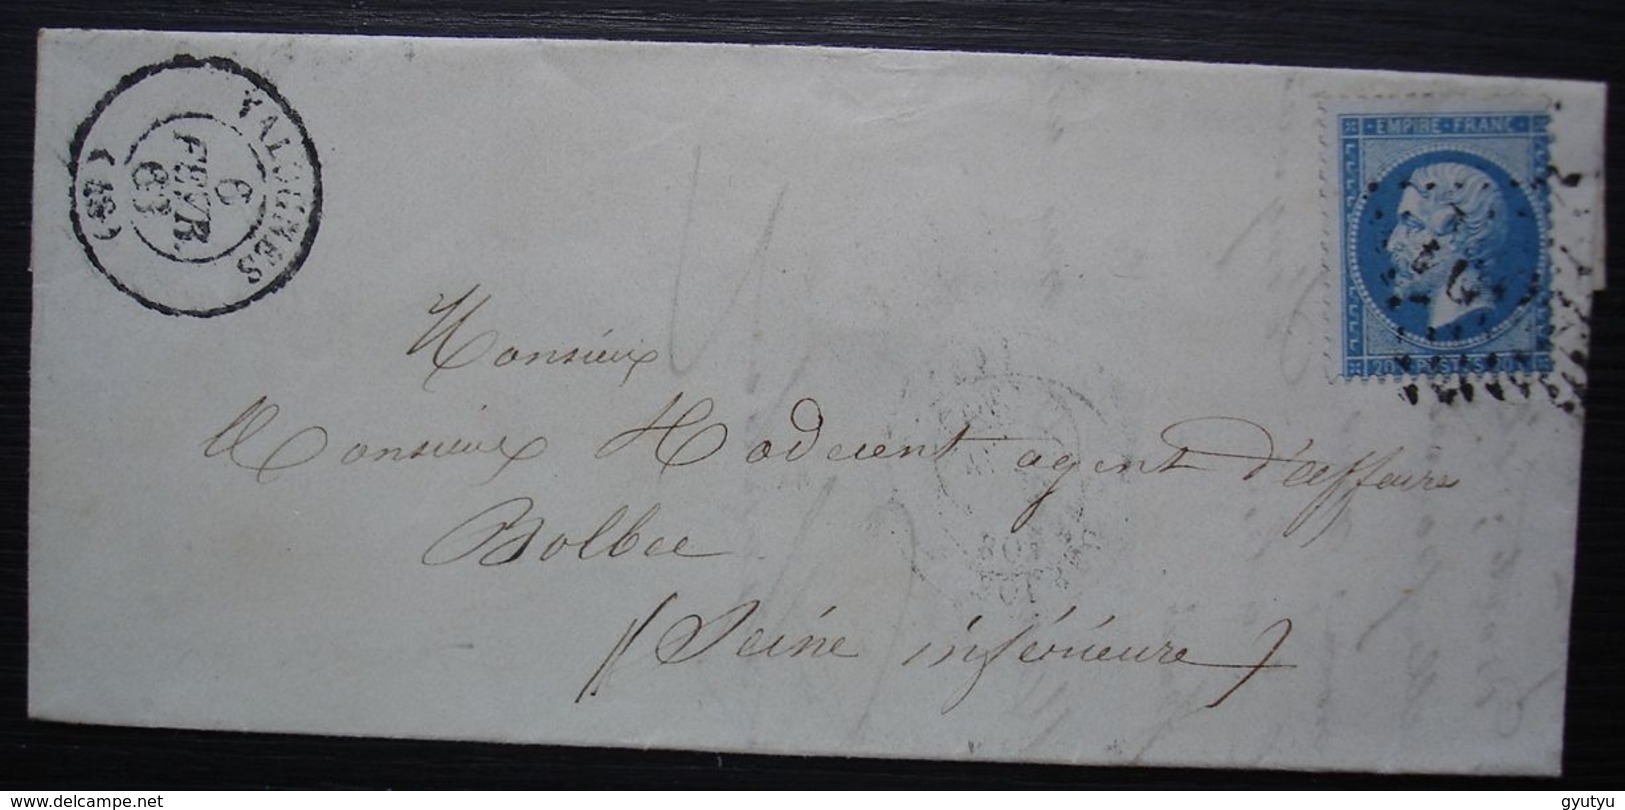 VALOGNES
6
FEVR.
63
(48)
EMPIRE · FRANC ·
20 C POSTES 20 C
Monsieur
Monsieur Hoderent agent d'affaires
Bolbec
(Seine inférieure)
www.delcampe.net
gyutyu